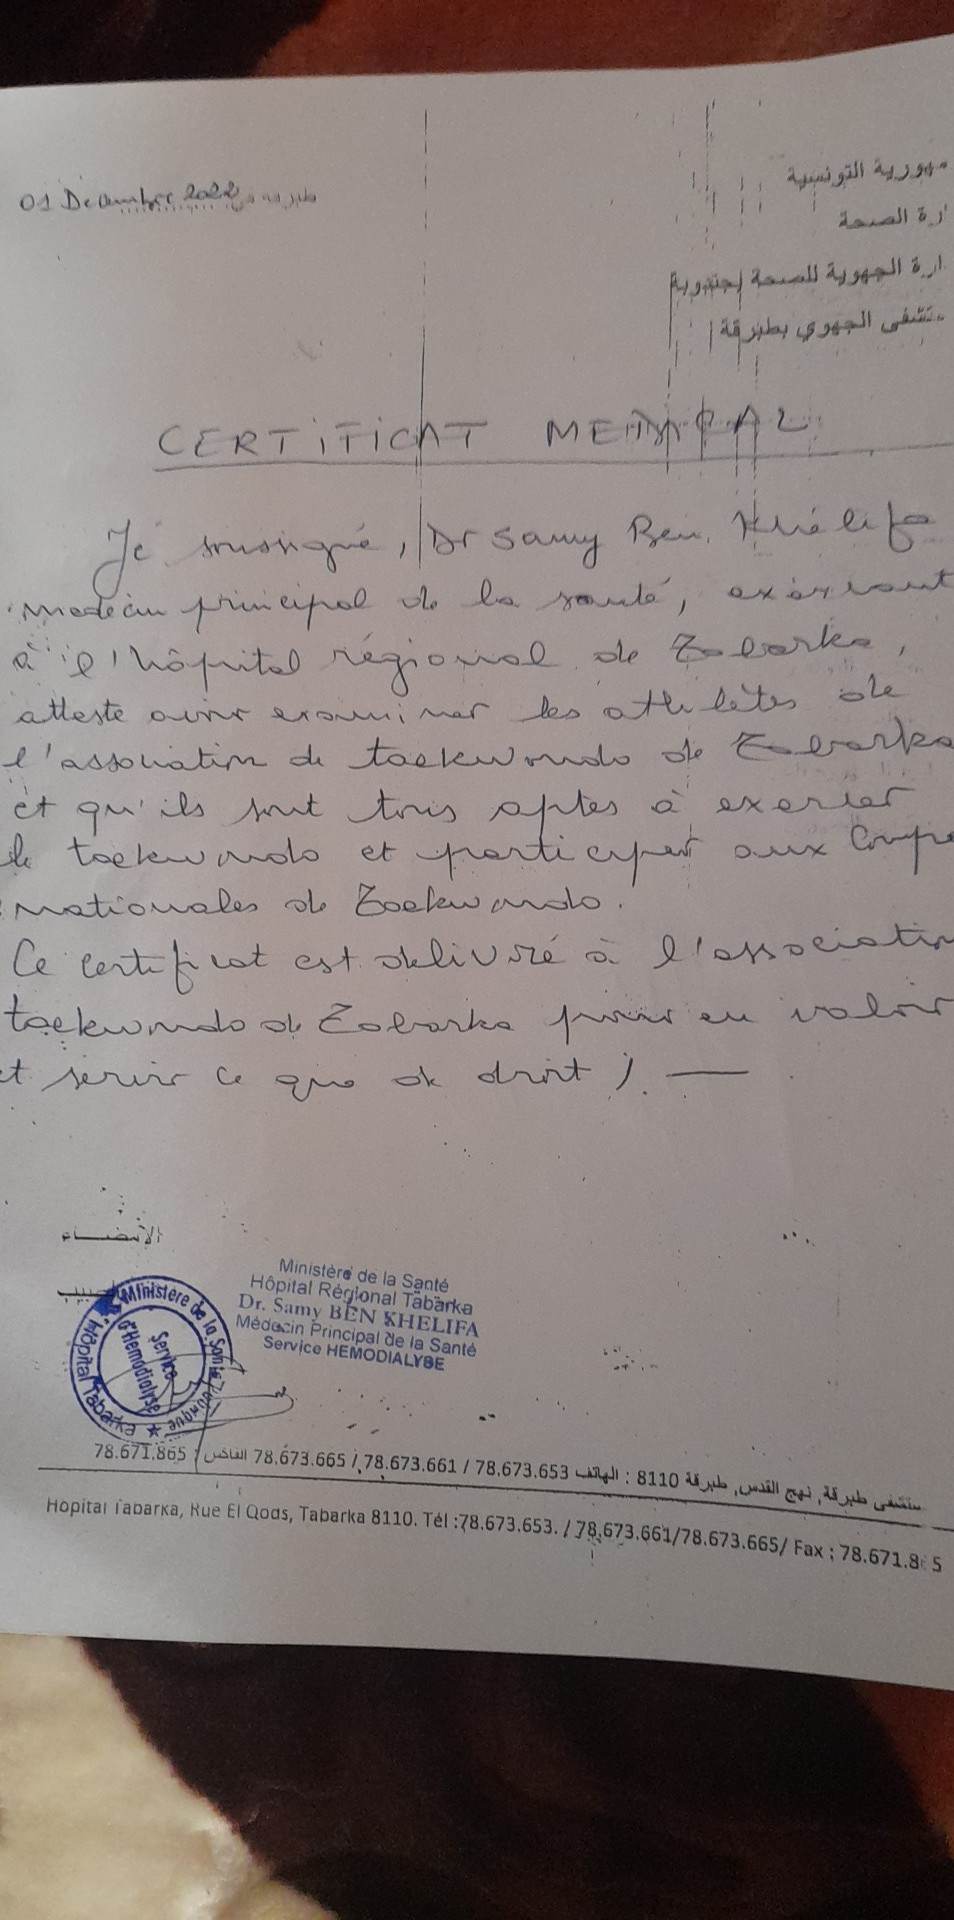 01 Decembre 2022 طبرقة في
ـهورية التونسية
ارة الصحة
ارة الجهوية للصحة بجندوبة
ـتشفى الجهوي بطبرقة
CERTIFICAT MEDICAL
Je soussigné, Dr Samy Ben Khélifa
medecin principal de la santé, exérçant
à l'hôpital régional de Tabarka,
atteste avoir examiner les athlètes de
l'association de taekwondo de Tabarka
et qu'ils sont tous aptes à exercer
le taekwondo et participer aux Coupe
nationales de Taekwondo.
Ce certificat est délivré à l'association
taekwondo de Tabarka pour en valoir
et servir ce que de droit ). —
الإمضـــاء
Ministère de la Santé
Hôpital Régional Tabarka
Dr. Samy BEN KHELIFA
Médecin Principal de la Santé
Service HEMODIALYSE
Ministère de la Santé Publique
Hôpital Tabarka
Service
d'Hemodialyse
ـستشفى طبرقة, نهج القدس, طبرقة 8110 : الهاتف 78.673.653 / 78.673.661 / 78.673.665 الفاكس : 78.671.865
Hopital Tabarka, Rue El Qods, Tabarka 8110. Tél :78.673.653. / 78.673.661/78.673.665/ Fax : 78.671.8 5